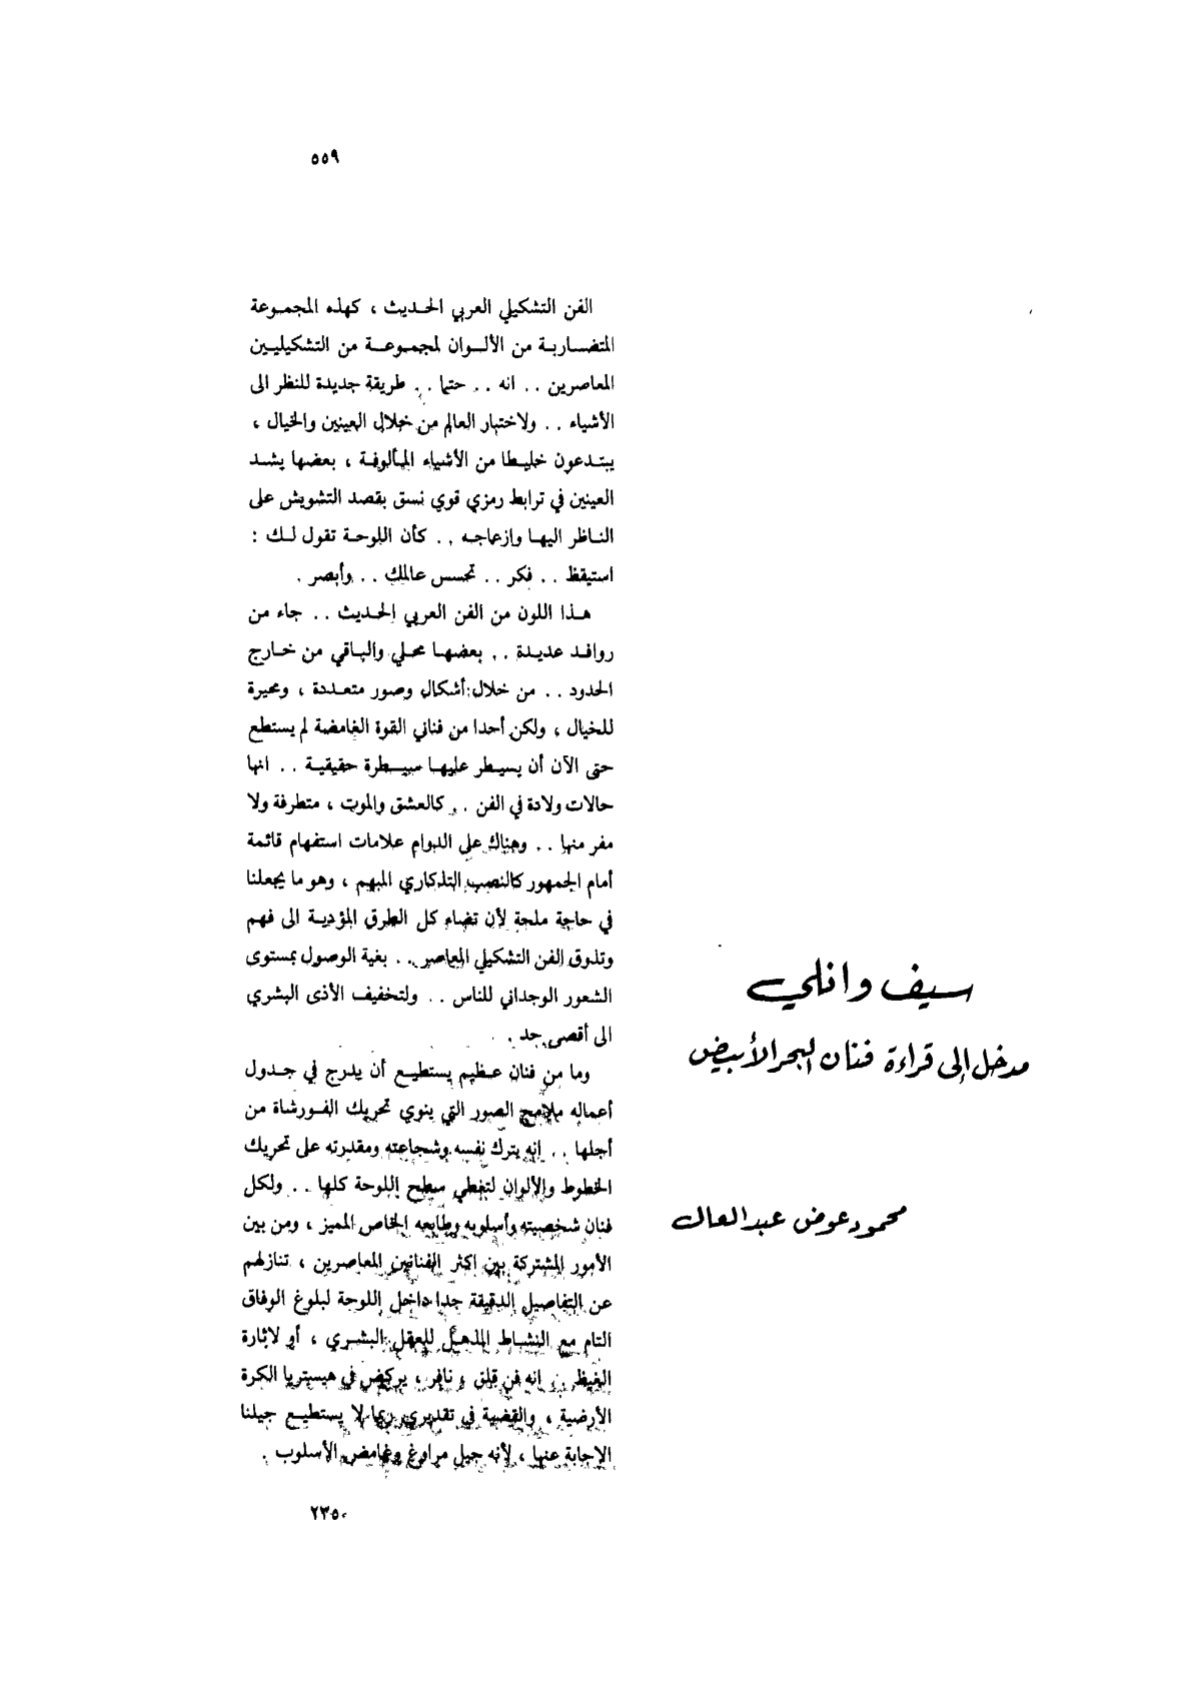 ٥٥٩
سيف وانلي
مدخل إلى قراءة فنان البحر الأبيض
محمود عوض عبد العال
الفن التشكيلي العربي الحديث ، كهذه المجموعة
المتضاربة من الألوان لمجموعة من التشكيليين
المعاصرين . . انه . . حتما . . طريقة جديدة للنظر الى
الأشياء . . ولاختبار العالم من خلال العينين والخيال ،
يبتدعون خليطا من الأشياء المألوفة ، بعضها يشد
العينين في ترابط رمزي قوي نسق بقصد التشويش على
الناظر اليها وازعاجه . . كأن اللوحة تقول لك :
استيقظ . . فكر . . تحسس عالمك . . وأبصر .
هذا اللون من الفن العربي الحديث . . جاء من
روافد عديدة . . بعضها محلي والباقي من خارج
الحدود . . من خلال أشكال وصور متعددة ، ومحيرة
للخيال ، ولكن أحدا من فناني القوة الغامضة لم يستطع
حتى الآن أن يسيطر عليها سيطرة حقيقية . . انها
حالات ولادة في الفن . . كالعشق والموت ، متطرفة ولا
مفر منها . . وهناك على الدوام علامات استفهام قائمة
أمام الجمهور كالنصب التذكاري المبهم ، وهو ما يجعلنا
في حاجة ملحة لأن تضاء كل الطرق المؤدية الى فهم
وتذوق الفن التشكيلي المعاصر . . بغية الوصول بمستوى
الشعور الوجداني للناس . . ولتخفيف الأذى البشري
الى أقصى حد .
وما من فنان عظيم يستطيع أن يدرج في جدول
أعماله ملامح الصور التي ينوي تحريك الفورشاة من
أجلها . . إنه يترك نفسه وشجاعته ومقدرته على تحريك
الخطوط والألوان لتغطي سطح اللوحة كلها . . ولكل
فنان شخصيته وأسلوبه وطابعه الخاص المميز ، ومن بين
الأمور المشتركة بين اكثر الفنانين المعاصرين ، تنازلهم
عن التفاصيل الدقيقة جدا داخل اللوحة لبلوغ الوفاق
التام مع النشاط المذهل للعقل البشري ، أو لاثارة
الغيظ . . انه فن قلق ، نافر ، يركض في هيستريا الكرة
الأرضية ، والقضية في تقديري ربما لا يستطيع جيلنا
الاجابة عنها ، لأنه جيل مراوغ وغامض الأسلوب .
٢٣٥٠